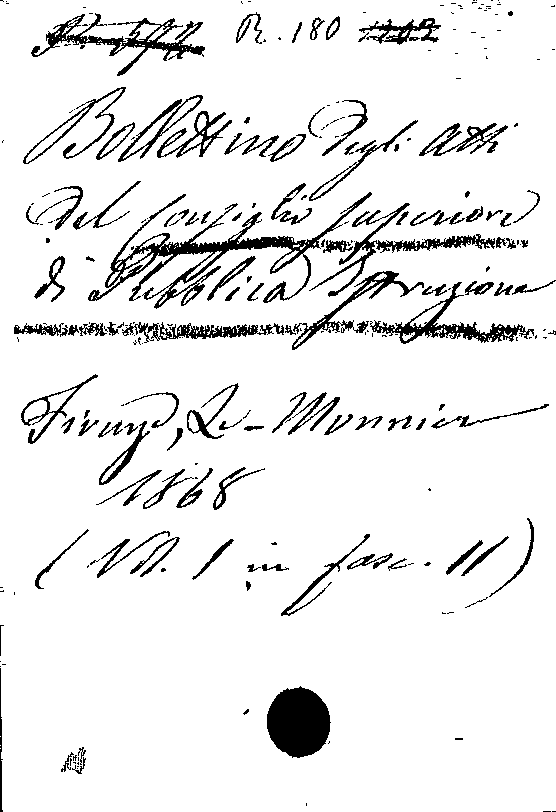 R. 180
Bollettino degli Atti
del Consiglio Superiore
di Pubblica Istruzione
Firenze, Le-Monnier
1868
(Vol. 1 in fasc. 11)